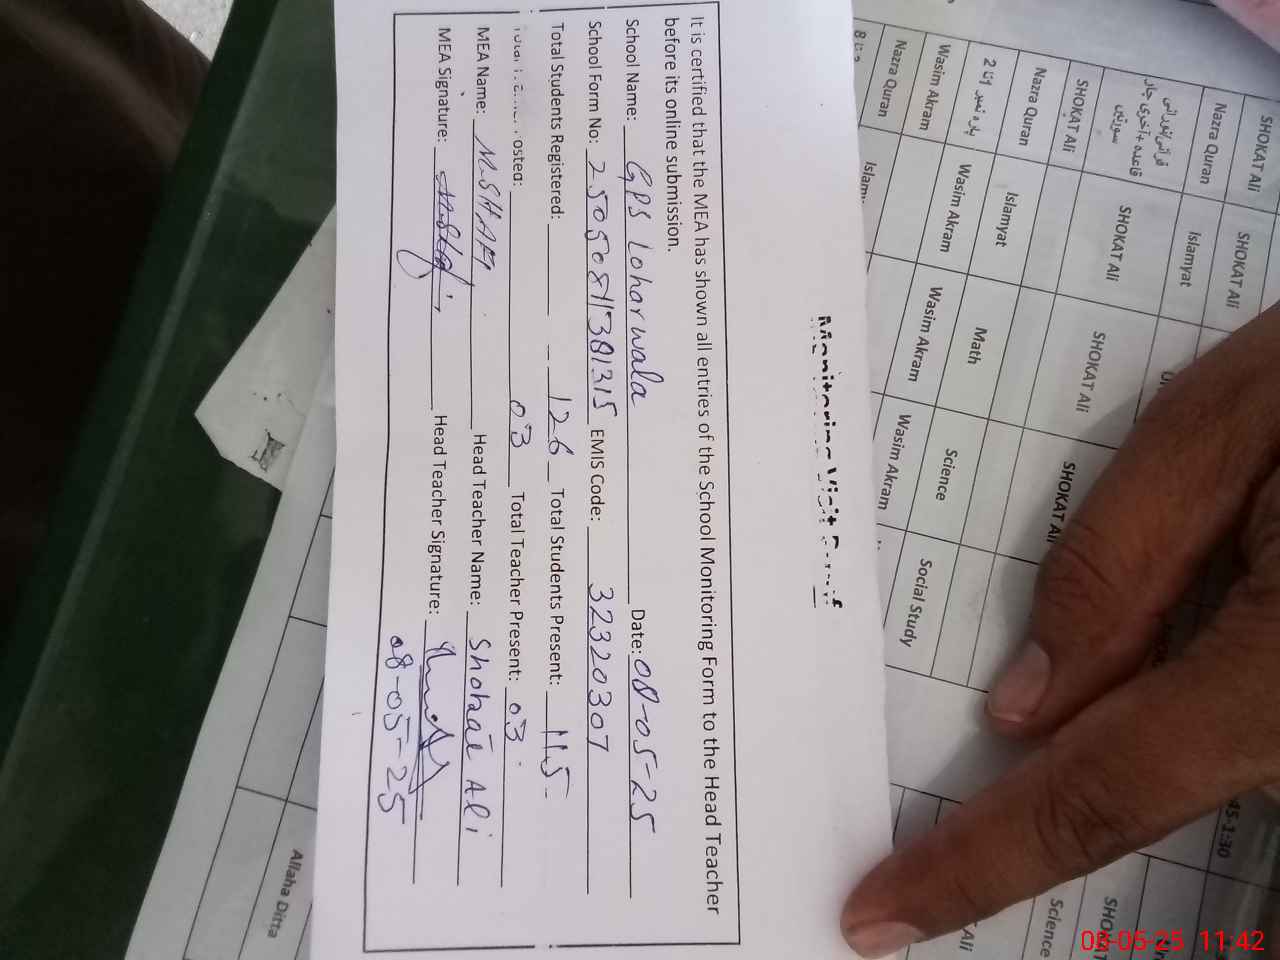 Monitoring Visit Proof
It is certified that the MEA has shown all entries of the School Monitoring Form to the Head Teacher
before its online submission.
School Name: GPS Loharwala Date: 08-05-25
School Form No: EMIS Code: 32320307
Total Students Registered: 126 Total Students Present: 115
Total Teacher Posted: 03 Total Teacher Present: 03
MEA Name: M.SHAFI Head Teacher Name: Shokat Ali
MEA Signature: Head Teacher Signature:
08-05-25
SHOKAT Ali SHOKAT Ali
Nazra Quran Islamyat
SHOKAT Ali SHOKAT Ali SHOKAT Ali SHOKAT Ali
Nazra Quran Islamyat Math Science Social Study
پارہ نمبر 1 تا 2
Wasim Akram Wasim Akram Wasim Akram Wasim Akram
Nazra Quran
45-1:30
Science
Allaha Ditta
08-05-25 11:42